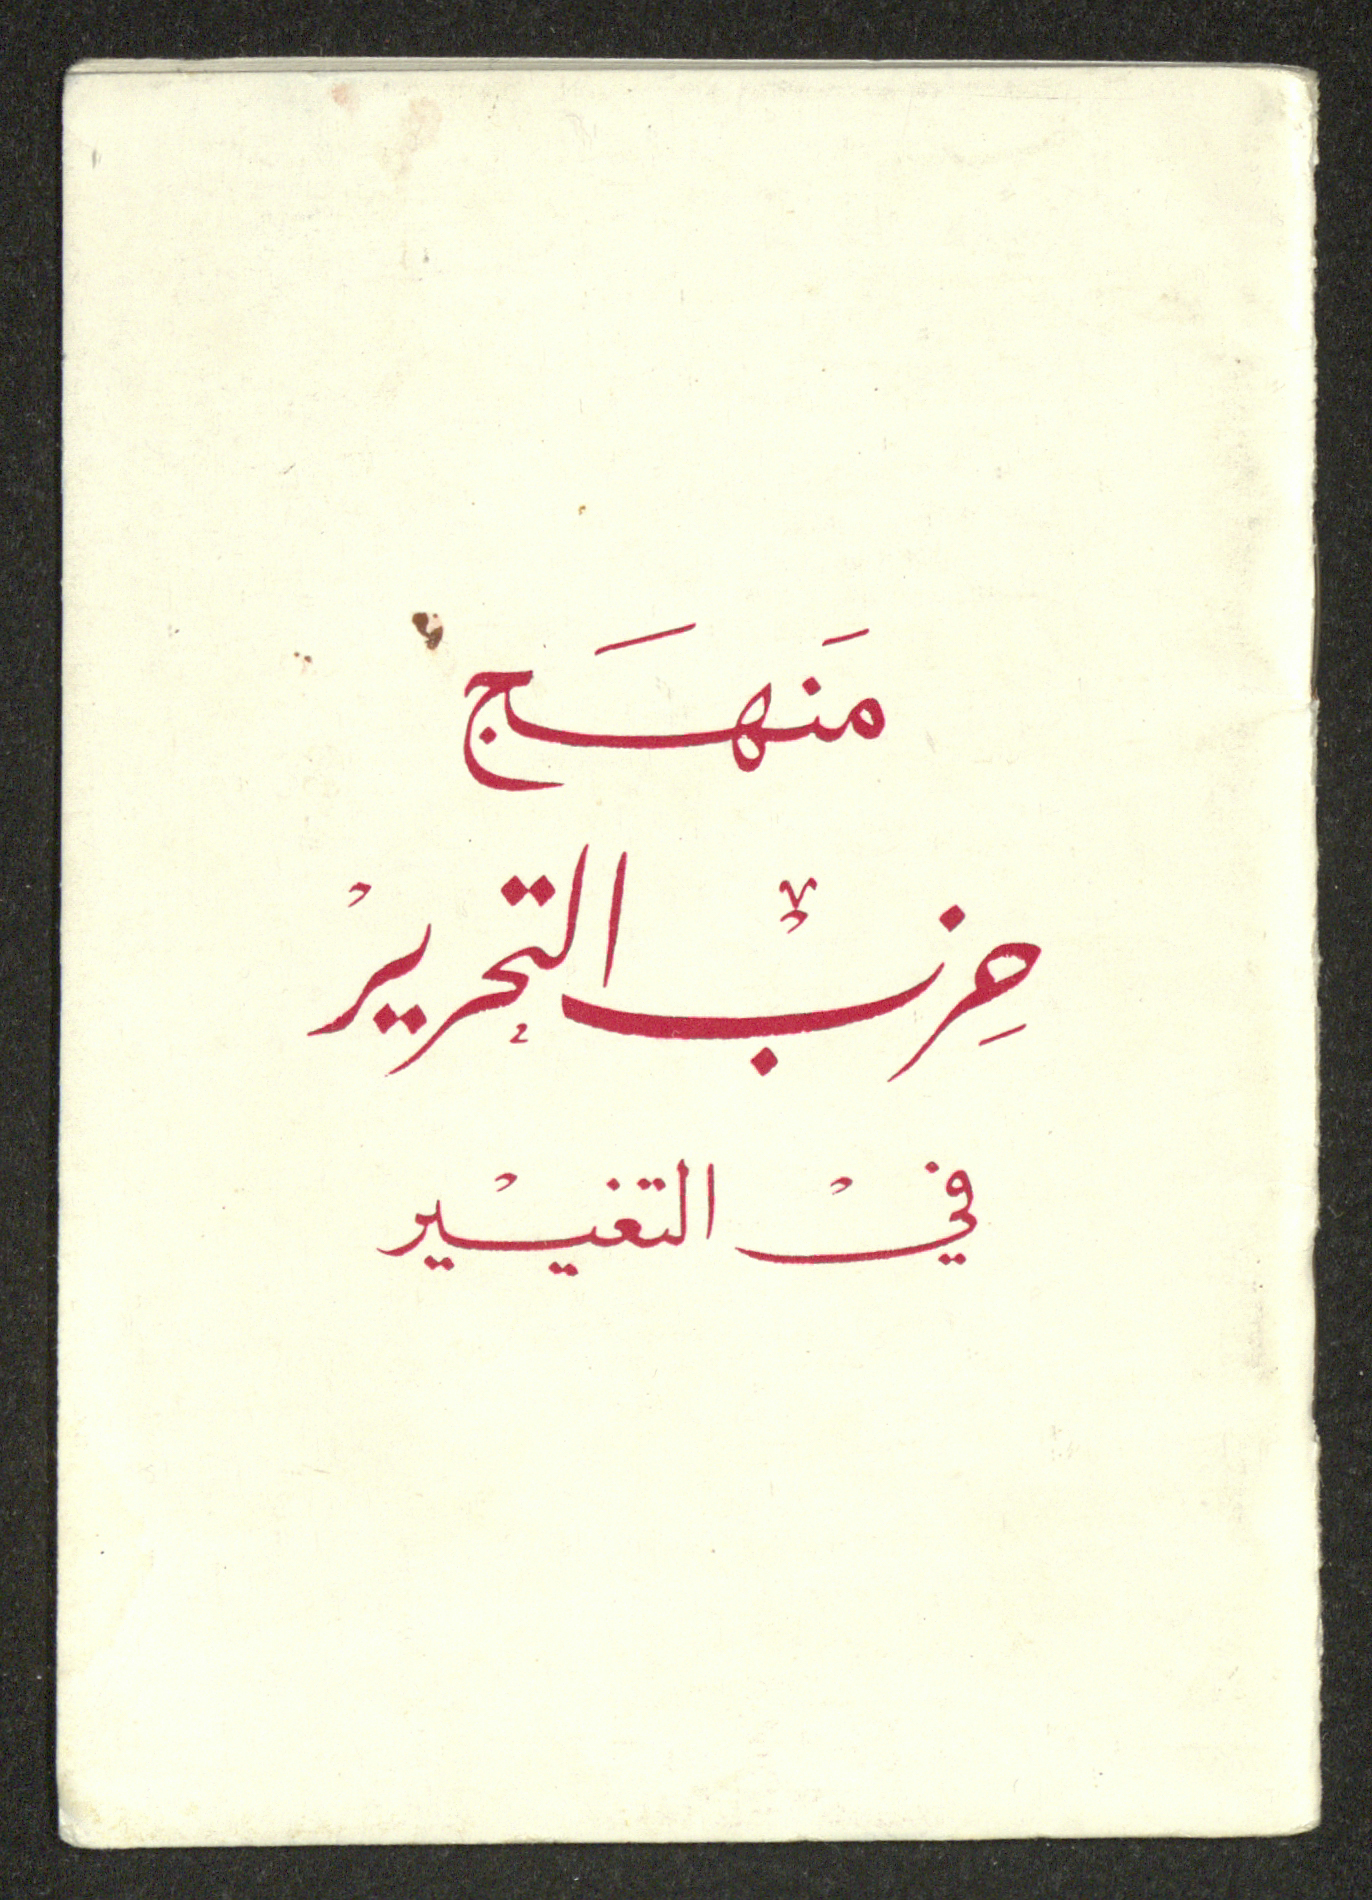 مَنهَج
حِزب التحرير
في التغيير